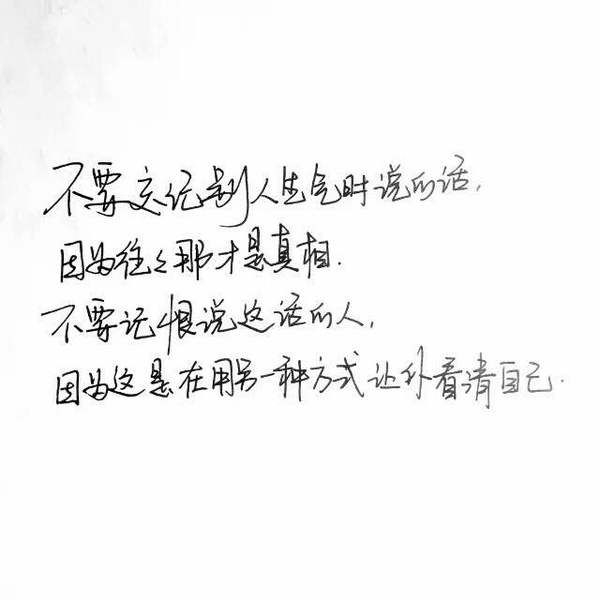 不要忘记别人生气时说的话,
因为往往那才是真相.
不要记恨说这话的人,
因为这是在用另一种方式让你看清自己.